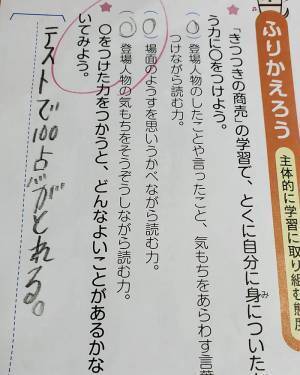 ふりかえろう
主体的に学習に取り組む態度
★「きつつきの商売」の学習で、とくに自分に身についた
み
う力に○をつけよう。
( ) 登場人物のしたことや言ったこと、気もちをあらわす言葉
つけながら読む力。
(○) 場面のようすを思いうかべながら読む力。
(○) 登場人物の気もちをそうぞうしながら読む力。
★○をつけた力をつかうと、どんなよいことがあるかな
いてみよう。
テストで100点がとれる。